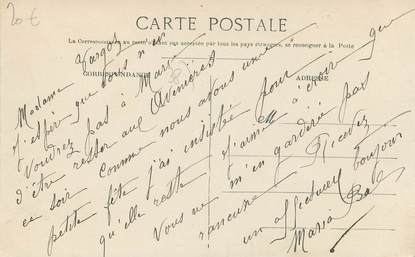 20€
CARTE POSTALE
La Correspondance au recto n'est pas acceptée par tous les pays étrangers, se renseigner à la Poste
CORRESPONDANCE
ADRESSE
38
Madame Fargot
J'espère que vous n'en
voudrez pas à Mary
d'être restée aux Avenières
ce soir comme nous avons une
petite fête j'ai insisté pour
qu'elle reste j'aime à croire que
Vous ne m'en garderez pas
rancune Recevez
un affectueux bonjour
Maria